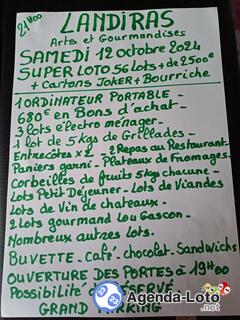 21H00
LANDIRAS
Arts et Gourmandises
SAMEDI 12 octobre 2024
SUPER LOTO 56 Lots + de 2500€
+ Cartons JOKER + Bourriche
1 ORDINATEUR PORTABLE -
680€ en Bons d'achat -
3 lots électro ménager -
1 lot de 5 kgs de Grillades -
Entrecôtes x 2 - 2 Repas au Restaurant -
Paniers garni - Plateaux de Fromages -
Corbeilles de fruits 5 kgs chacune -
Lots Petit Déjeuner - Lots de Viandes
Lots de Vin de chateaux -
2 Lots gourmand Lou Gascon -
Nombreux autres lots.
BUVETTE - café - chocolat - Sandwichs
OUVERTURE DES PORTES à 19H00
Possibilité RÉSERVÉ
GRAND PARKING
Agenda-Loto.net